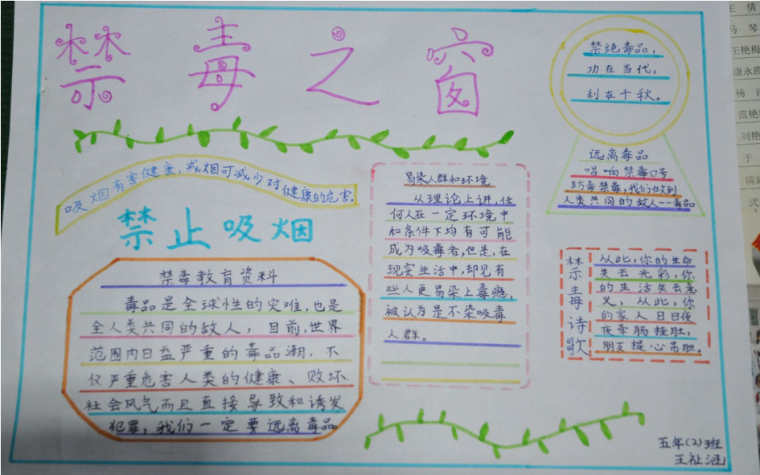 禁毒之窗
吸烟有害健康，戒烟可减少对健康的危害。
禁止吸烟
禁毒教育资料
毒品是全球性的灾难，也是
全人类共同的敌人，目前，世界
范围内日益严重的毒品潮，不
仅严重危害人类的健康、败坏
社会风气而且直接导致和诱发
犯罪，我们一定要远离毒品
易染人群和环境
从理论上讲，任
何人在一定环境中
和条件下均有可能
成为吸毒者，但是，在
现实生活中，却见有
些人更易染上毒瘾，
被认为是不染吸毒
人群。
禁绝毒品，
功在当代，
利在千秋。
远离毒品
唱响禁毒口号
巧毒禁毒，我们找到
人类共同的敌人--毒品
禁毒诗歌
从此，你的生命
失去光彩，你
的生活失去意
义，从此，你
的家人日日夜
夜牵肠挂肚，
朋友提心吊胆。
五年(2)班
王祉涵
王倩
马琴
王艳梅